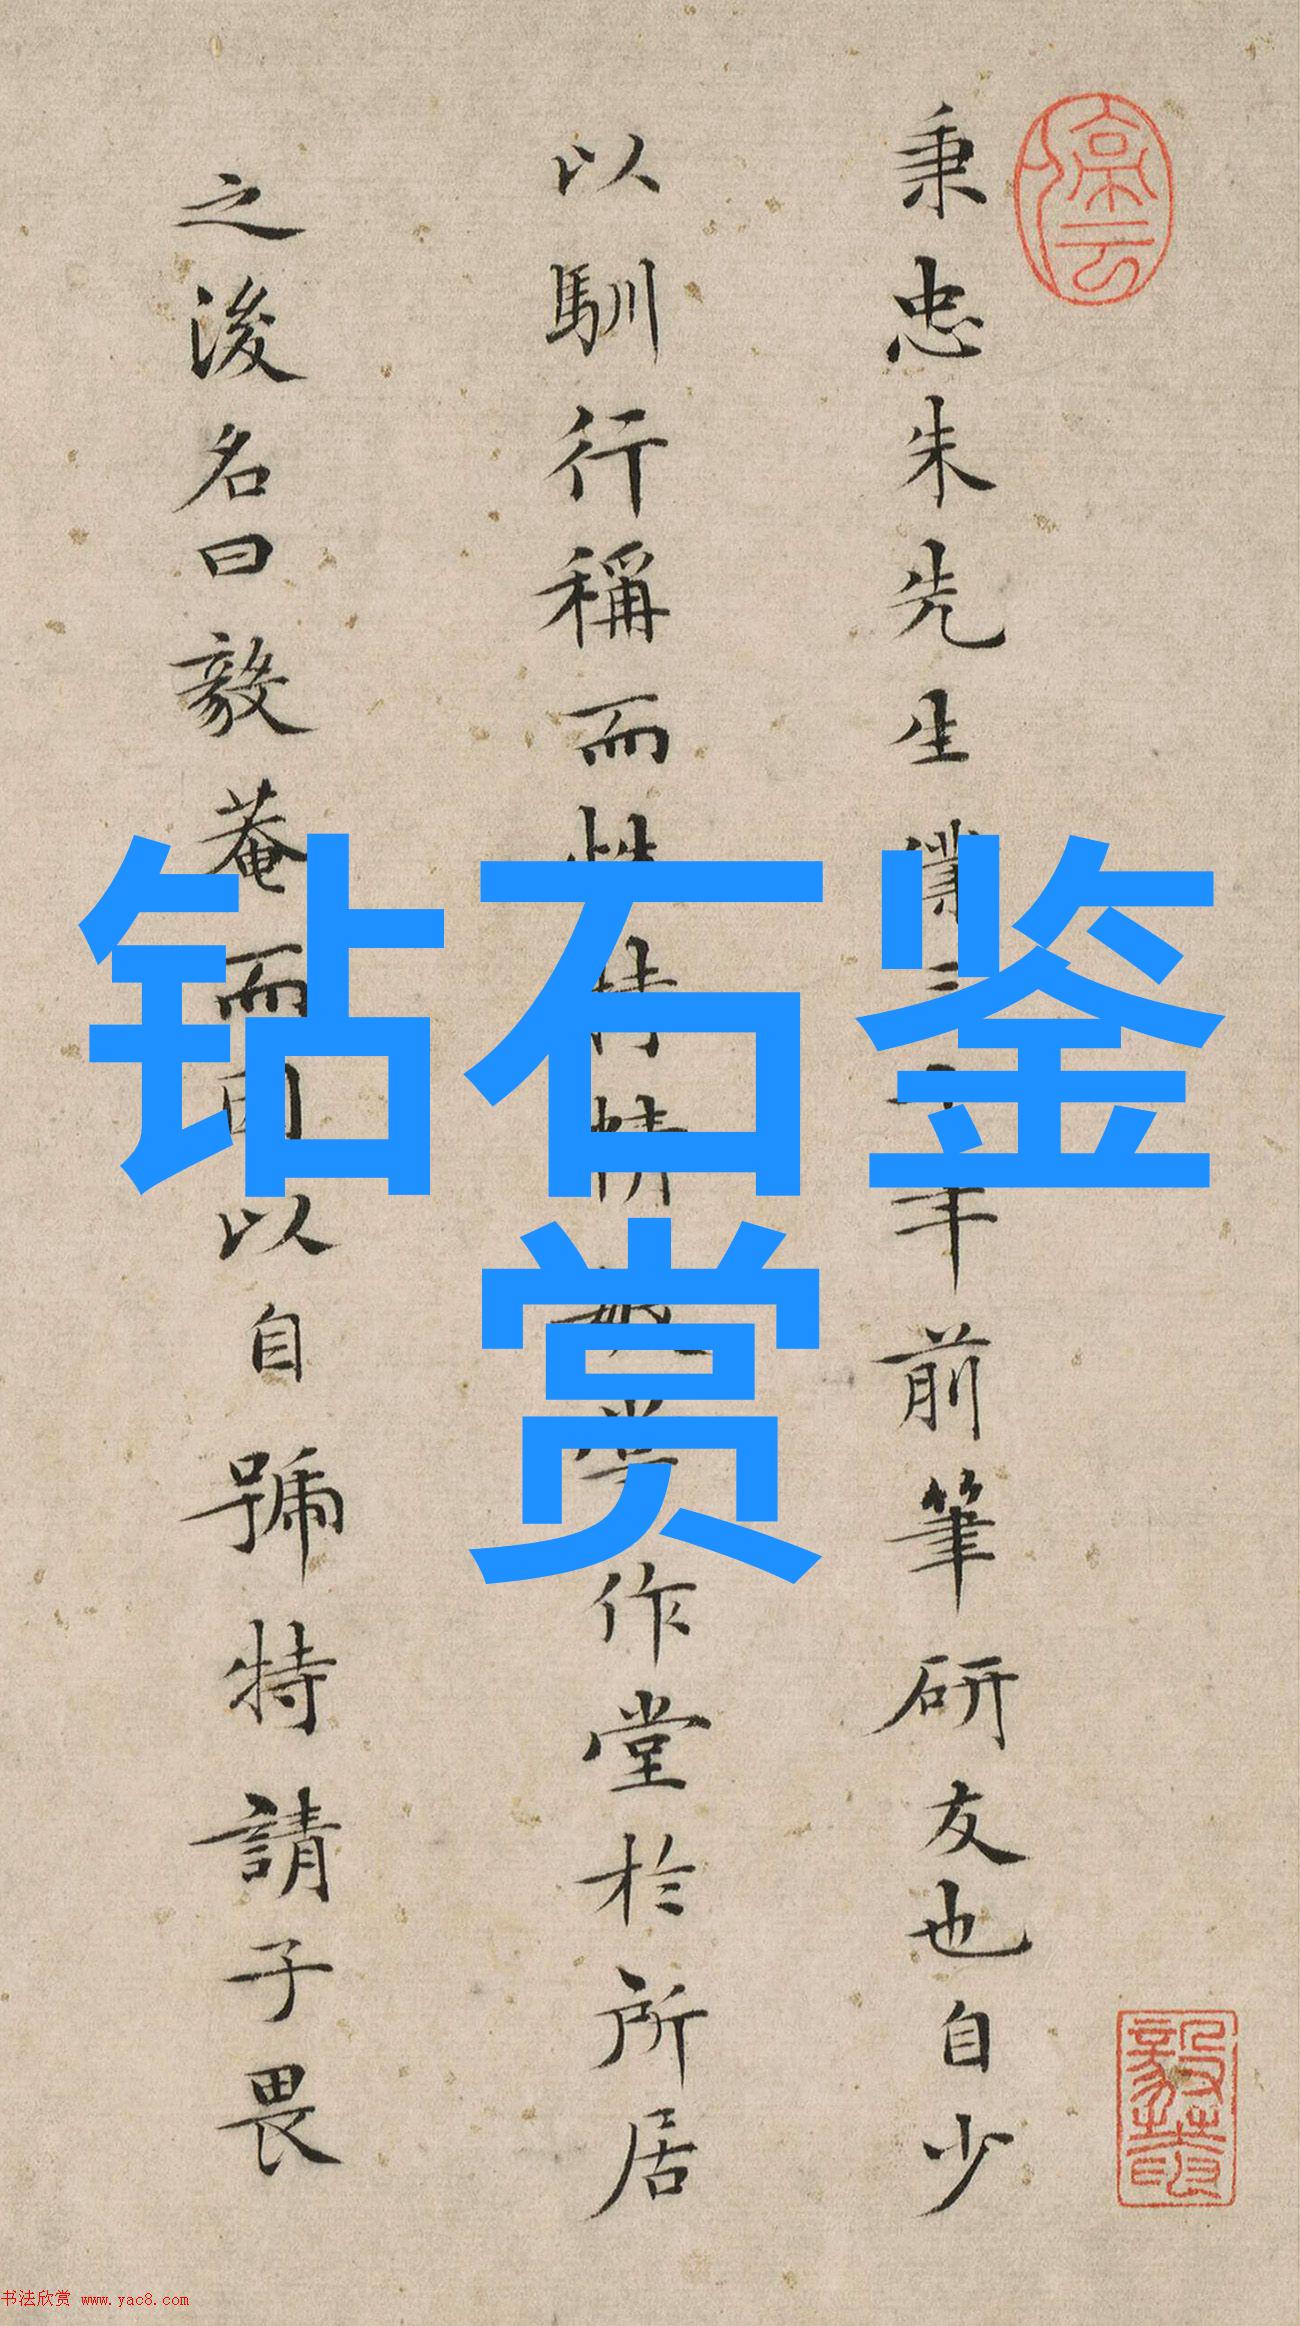 停云
秉忠朱先生三年前筆研友也自少
以馴行稱而性作堂於所居
之後名曰毅菴而因以自號特請子畏
钻石鉴
赏
书法欣赏 www.yac8.com